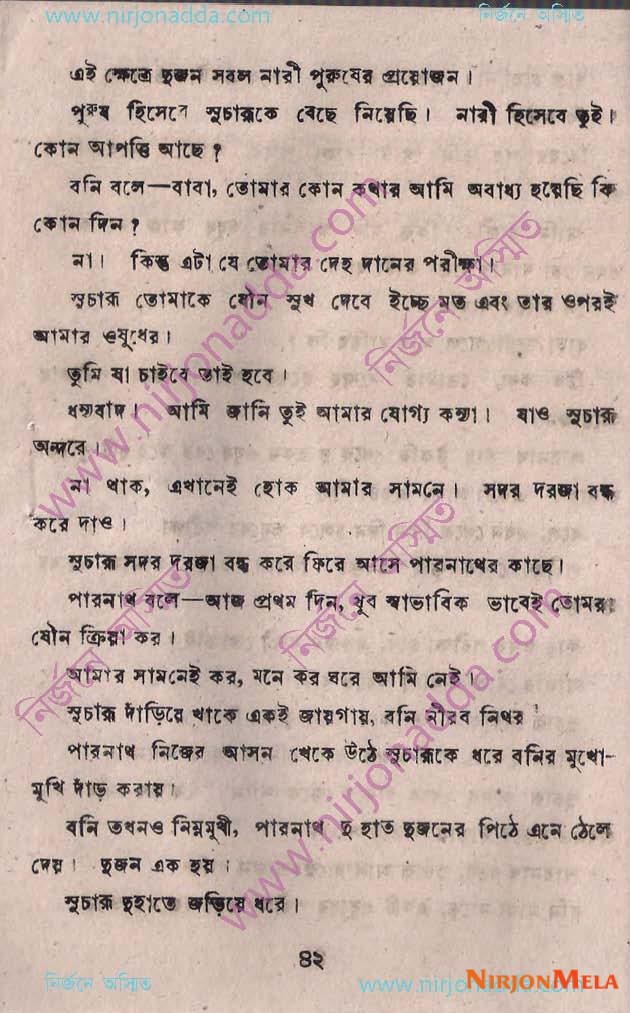 www.nirjonadda.com নির্জনে অস্মিত
এই ক্ষেত্রে দুজন সবল নারী পুরুষের প্রয়োজন।
পুরুষ হিসেবে সুচারুকে বেছে নিয়েছি। নারী হিসেবে তুই।
কোন আপত্তি আছে?
বনি বলে—বাবা, তোমার কোন কথার আমি অবাধ্য হয়েছি কি
কোন দিন?
না। কিন্তু এটা যে তোমার দেহ দানের পরীক্ষা।
সুচারু তোমাকে যৌন সুখ দেবে ইচ্ছে মত এবং তার ওপরই
আমার ওষুধের।
তুমি যা চাইবে তাই হবে।
ধন্যবাদ। আমি জানি তুই আমার যোগ্য কন্যা। যাও সুচারু
অন্দরে।
না থাক, এখানেই হোক আমার সামনে। সদর দরজা বন্ধ
করে দাও।
সুচারু সদর দরজা বন্ধ করে ফিরে আসে পারনাথের কাছে।
পারনাথ বলে—আজ প্রথম দিন, খুব স্বাভাবিক ভাবেই তোমরা
যৌন ক্রিয়া কর।
আমার সামনেই কর, মনে কর ঘরে আমি নেই।
সুচারু দাঁড়িয়ে থাকে একই জায়গায়, বনি নীরব নিথর
পারনাথ নিজের আসন থেকে উঠে সুচারুকে ধরে বনির মুখো-
মুখি দাঁড় করায়।
বনি তখনও নিম্নমুখী, পারনাথ দু হাত দুজনের পিঠে এনে ঠেলে
দেয়। দুজন এক হয়।
সুচারু দুহাতে জড়িয়ে ধরে।
৪২
নির্জনে অস্মিত www.nirjonadda.com
NIRJONMELA
www.nirjonadda.com নির্জনে অস্মিত
নির্জনে অস্মিত
নির্জনে অস্মিত
www.nirjonadda.com